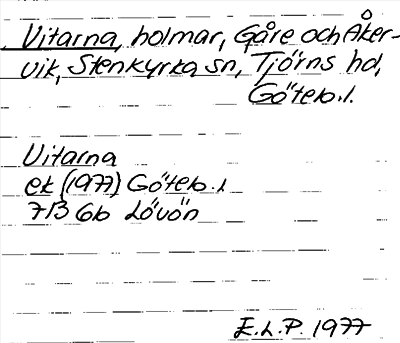 Vitarna, holmar, Gåre och Åker-
vik, Stenkyrka sn, Tjörns hd,
Göteb. l.
Vitarna
ek (1977) Göteb. l
7B 6b Lövön
E.L.P. 1977